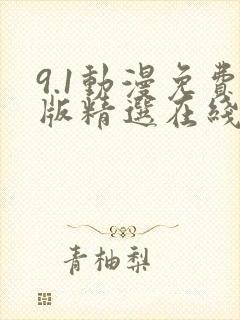 9.1動漫免費
版精選在綫
青柚梨